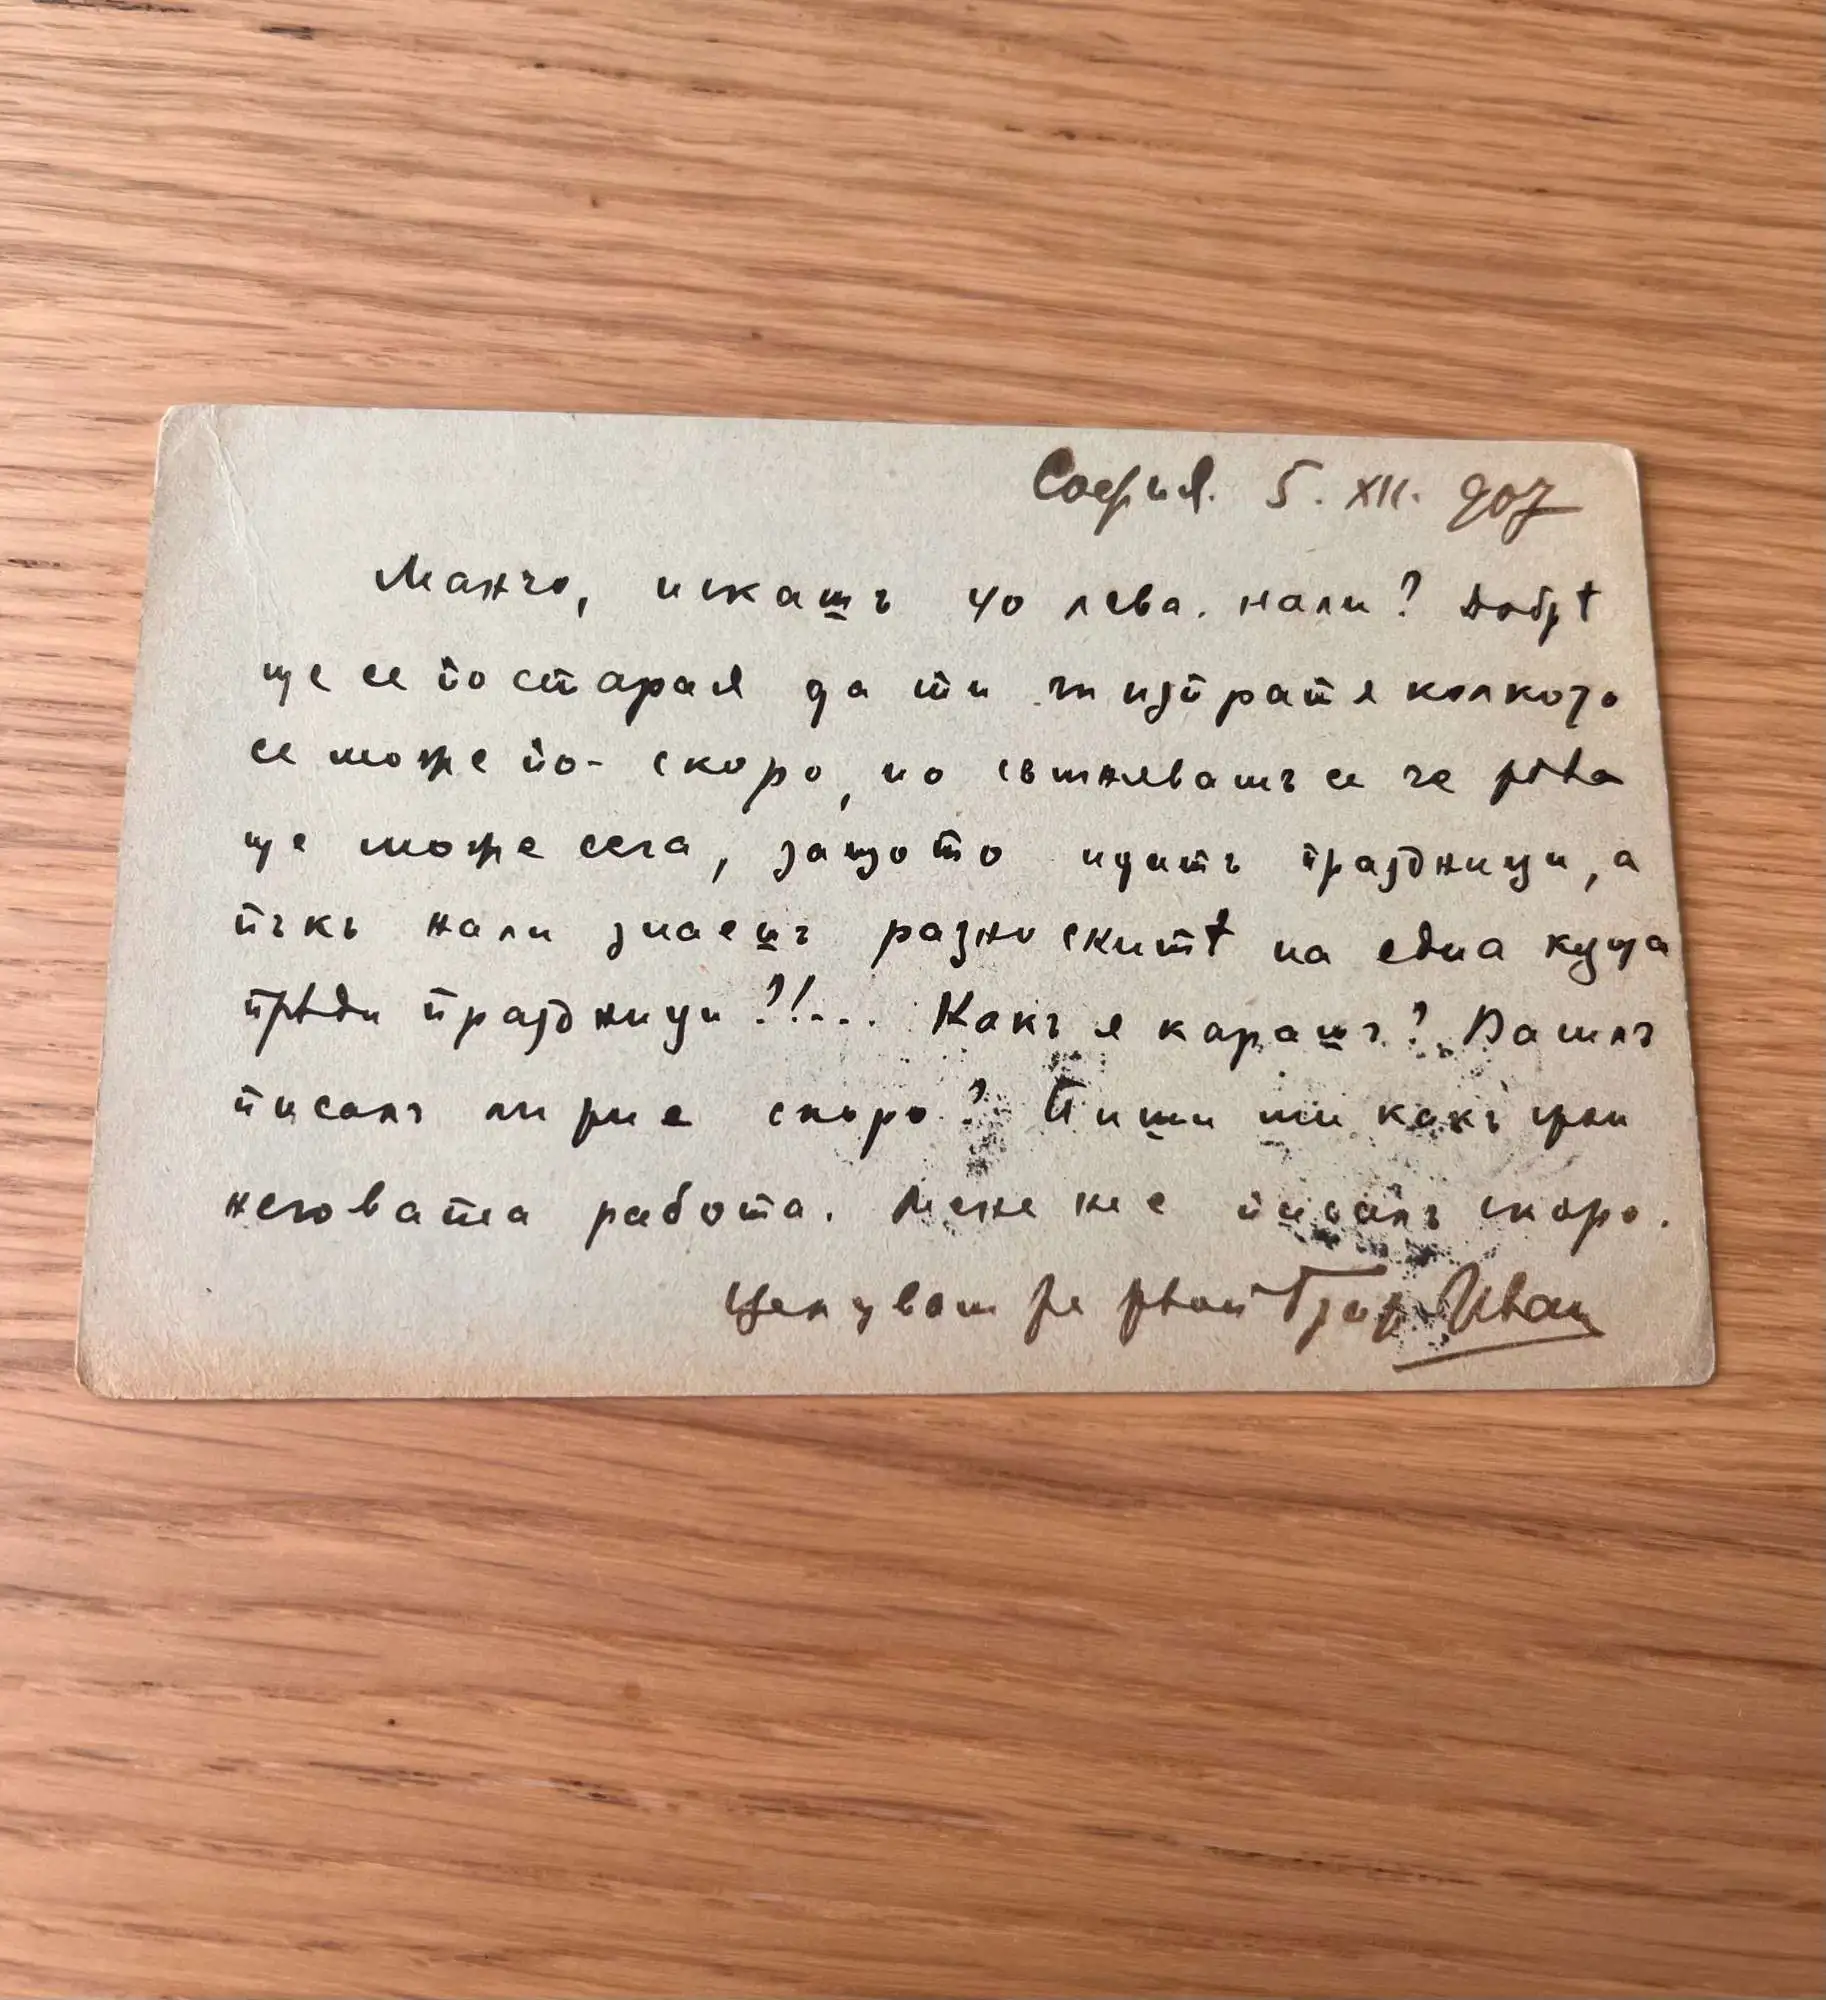 София. 5. XII. 907
Манчо, искашъ 40 лева. нали? Добрѣ
ще се постарая да ти ги изпратя колкото
се може по-скоро, но съмнявамъ се че
ще може сега, защото идатъ празници, а
пъкъ нали знаешъ разноскитѣ на една куща
прѣди празници?!... Какъ я карашъ? Васил
писалъ ли ти е скоро? Пиши ми какъ
неговата работа. Мене не е писалъ скоро.
Целувамъ те твой Иван